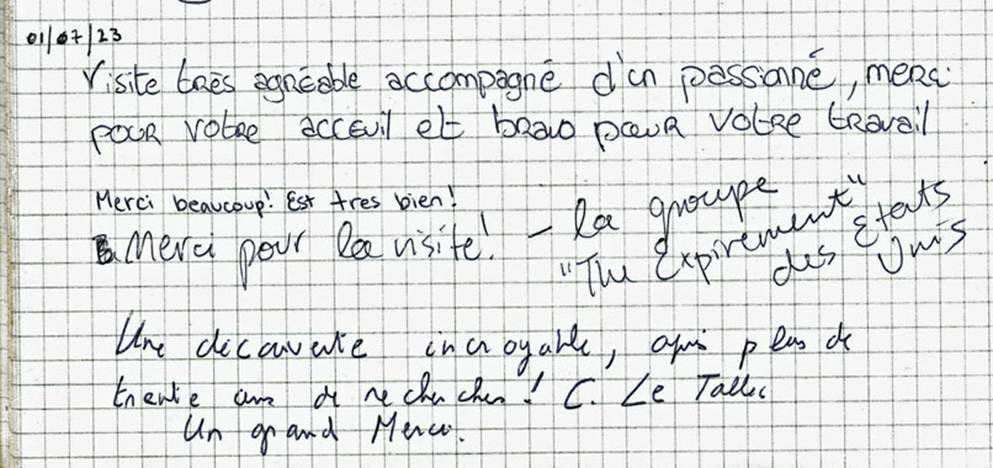 01/07/23
Visite très agréable accompagné d'un passionné, merci
pour votre acceuil et bravo pour votre travail
Merci beaucoup! Est tres bien!
Merci pour la visite! - la groupe
"The Expirement"
des Etats
Unis
Une découverte incroyable, après plus de
trente ans de recherches! C. Le Tallec
Un grand Merci.